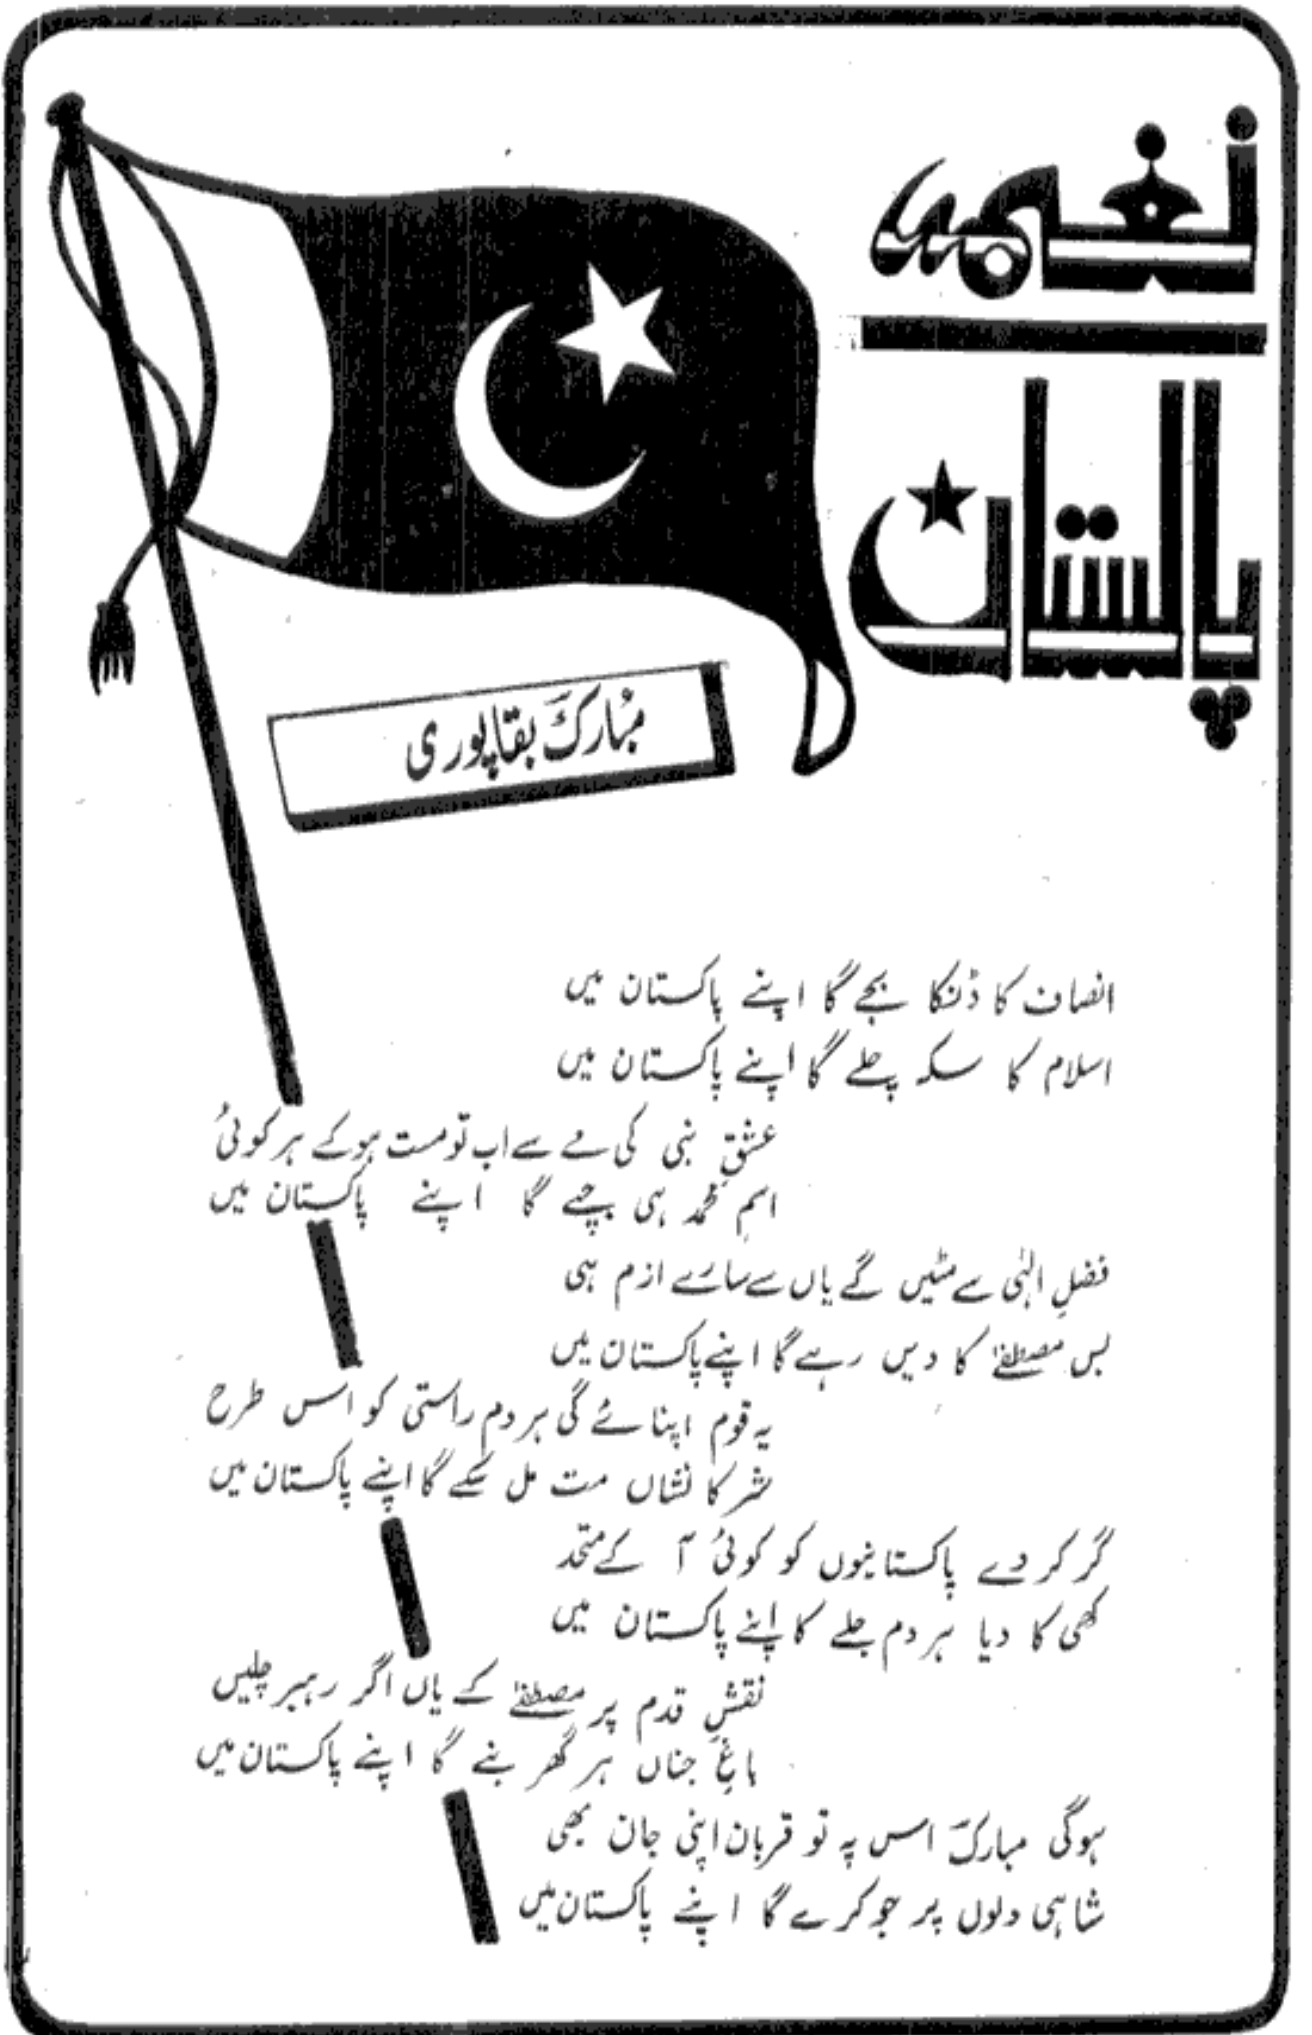 نغمہ
پاکستان
مبارکؔ بقاپوری
انصاف کا ڈنکا بجے گا اپنے پاکستان میں
اسلام کا سکہ چلے گا اپنے پاکستان میں
عشقِ نبی کی مے سے اب تو مست ہو کے ہر کوئی
اسمِ محمد ہی جپے گا اپنے پاکستان میں
فضلِ الٰہی سے مٹیں گے یاں سے سارے ازم ہی
بس مصطفےٰ کا دیں رہے گا اپنے پاکستان میں
یہ قوم اپنائے گی ہر دم راستی کو اس طرح
شر کا نشاں مت مل سکے گا اپنے پاکستان میں
گر کر دے پاکستانیوں کو کوئی آ کے متحد
گھی کا دیا ہر دم جلے گا اپنے پاکستان میں
نقشِ قدم پر مصطفےٰ کے یاں اگر رہبر چلیں
باغِ جناں ہر گھر بنے گا اپنے پاکستان میں
ہوگی مبارکؔ اس پہ تو قربان اپنی جان بھی
شاہی دلوں پر جو کرے گا اپنے پاکستان میں